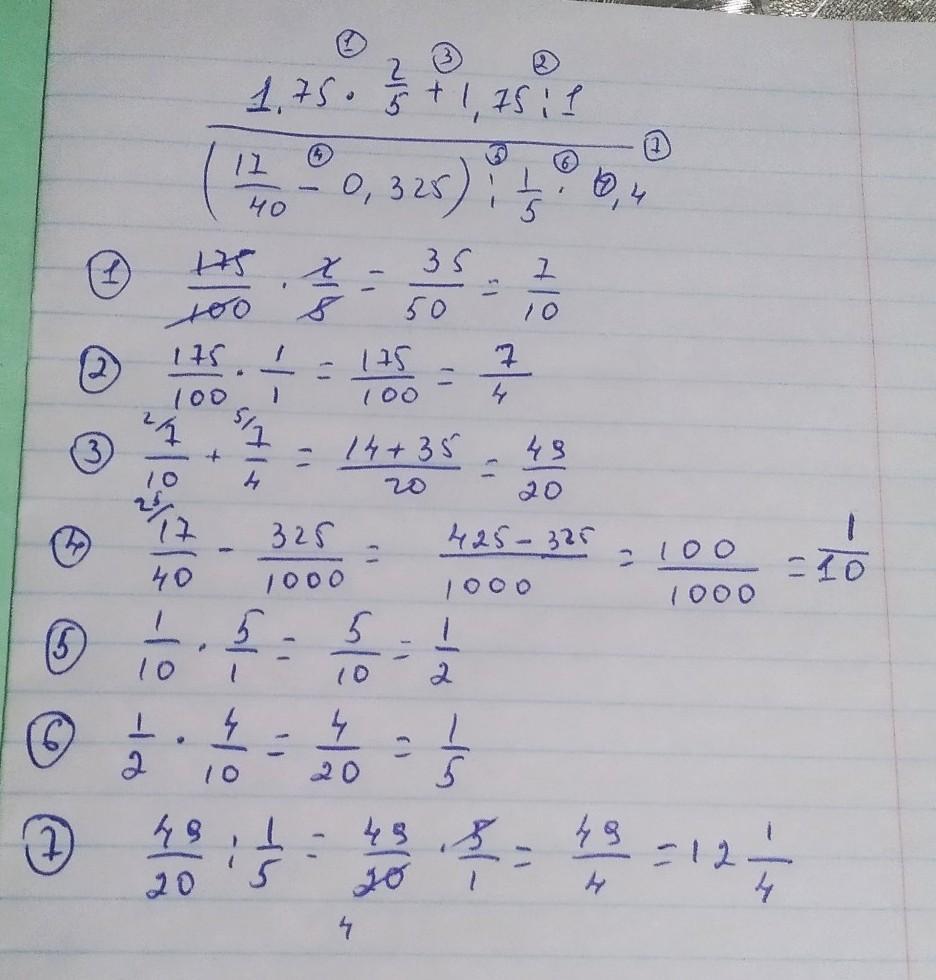 ① ③ ②
1,75 · 2/5 + 1,75 : 1
④ ⑤ ⑥ ⑦
(17/40 - 0,325) : 1/5 · 0,4
① 175/100 · 2/5 = 35/50 = 7/10
② 175/100 · 1/1 = 175/100 = 7/4
③ 2/ 7/10 + 5/ 7/4 = (14+35)/20 = 49/20
④ 25/ 17/40 - 325/1000 = (425-325)/1000 = 100/1000 = 1/10
⑤ 1/10 · 5/1 = 5/10 = 1/2
⑥ 1/2 · 4/10 = 4/20 = 1/5
⑦ 49/20 : 1/5 = 49/20 · 5/1 = 49/4 = 12 1/4
4